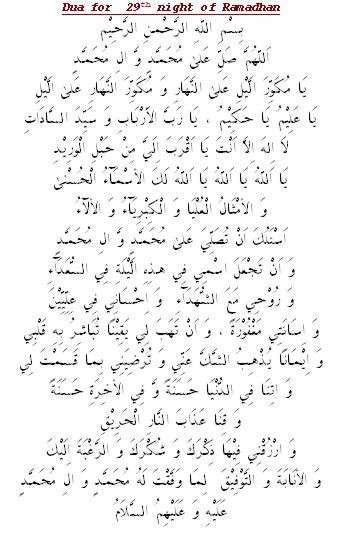 Dua for 29th night of Ramadhan
بِسْمِ اللّٰهِ الرَّحْمٰنِ الرَّحِيْمِ
اَللّٰهُمَّ صَلِّ عَلىٰ مُحَمَّدٍ وَّ اٰلِ مُحَمَّدٍ
يَا مُكَوِّرَ الَّيْلِ عَلىَ النَّهَارِ وَ مُكَوِّرَ النَّهَارِ عَلىَ الَّيْلِ
يَا عَلِيْمُ يَا حَكِيْمُ ، يَا رَبَّ الْاَرْبَابِ وَ سَيِّدَ السَّادَاتِ
لاَ اِلهَ اِلاَّ اَنْتَ يَا اَقْرَبَ اِلَيَّ مِنْ حَبْلِ الْوَرِيْدِ
يَا اَللّٰهُ يَا اَللّٰهُ يَا اَللّٰهُ لَكَ الْاَسْمَآءُ الْحُسْنىٰ
وَ الْاَمْثَالُ الْعُلْيَا وَ الْكِبْرِيَآءُ وَ الْاٰلآءُ
اَسْئَلُكَ اَنْ تُصَلِّيَ عَلىٰ مُحَمَّدٍ وَّ اٰلِ مُحَمَّدٍ
وَ اَنْ تَجْعَلَ اسْمِي فِي هٰذِهِ الَّيْلَةِ فِي السُّعَدَآءِ
وَ رُوْحِي مَعَ الشُّهَدَآءِ وَ اِحْسَانِي فِي عِلِّيِّيْنَ
وَ اِسَائَتِي مَغْفُوْرَةً ، وَ اَنْ تَهَبَ لِي يَقِيْنًا تُبَاشِرُ بِهِ قَلْبِي
وَ اِيْمَانًا يُذْهِبُ الشَّكَّ عَنِّي وَ تُرْضِيَنِي بِمَا قَسَمْتَ لِي
وَ اٰتِنَا فِي الدُّنْيَا حَسَنَةً وَّ فِي الْاٰخِرَةِ حَسَنَةً
وَ قِنَا عَذَابَ النَّارِ الْحَرِيْقِ
وَ ارْزُقْنِي فِيْهَا ذِكْرَكَ وَ شُكْرَكَ وَ الرَّغْبَةَ اِلَيْكَ
وَ الْاِنَابَةَ وَ التَّوْفِيْقَ لِمَا وَفَّقْتَ لَهُ مُحَمَّدٍ وَ اٰلِ مُحَمَّدٍ
عَلَيْهِ وَ عَلَيْهِمُ السَّلاَمُ